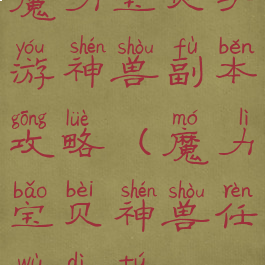 魔力宝贝手
yóu shén shòu fù běn
游神兽副本
gōng lüè mó lì
攻略（魔力
bǎo bèi shén shòu rèn
宝贝神兽任
wù dì tú